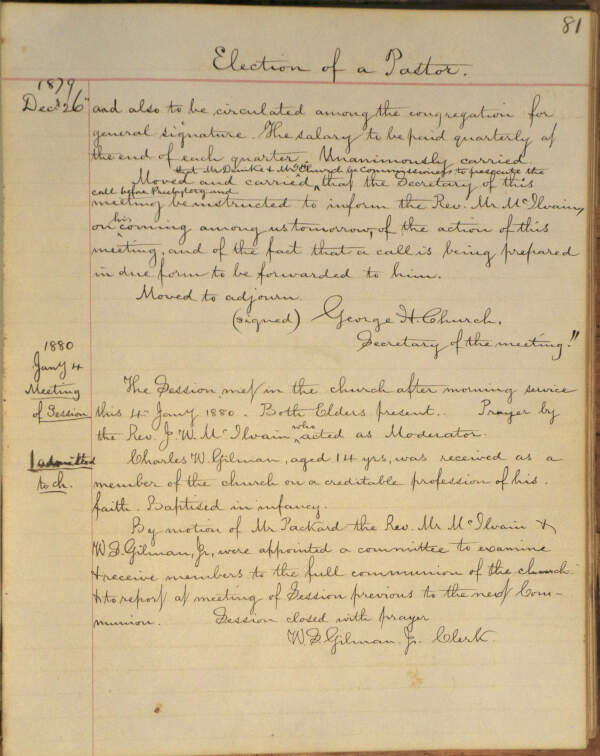 81
Election of a Pastor.
1879
Decr 26th and also to be circulated among the congregation for
general signature. The salary to be paid quarterly at
the end of each quarter. Unanimously carried
that Mr. & Mr. Church be Commissioners to prosecute the
Moved and carried, that the Secretary of this
call before Presbytery and
meeting be instructed to inform the Rev. Mr. McIlvain,
on his coming among us tomorrow, of the action of this
meeting, and of the fact that a call is being prepared
in due form to be forwarded to him.
Moved to adjourn
(signed) George H. Church,
Secretary of the meeting."
1880
Jany 4
Meeting
of Session
The Session met in the church after morning service
this 4 Jany 1880. Both Elders present. Prayer by
the Rev. J. W. McIlvain who acted as Moderator.
1 admitted
to ch.
Charles W. Gilman, aged 14 yrs, was received as a
member of the church on a creditable profession of his
faith. Baptised in infancy.
By motion of Mr Packard the Rev. Mr McIlvain &
W. S. Gilman, Jr, were appointed a committee to examine
& receive members to the full communion of the church
& to report at meeting of Session previous to the next Com-
munion. Session closed with prayer
W. S. Gilman Jr. Clerk